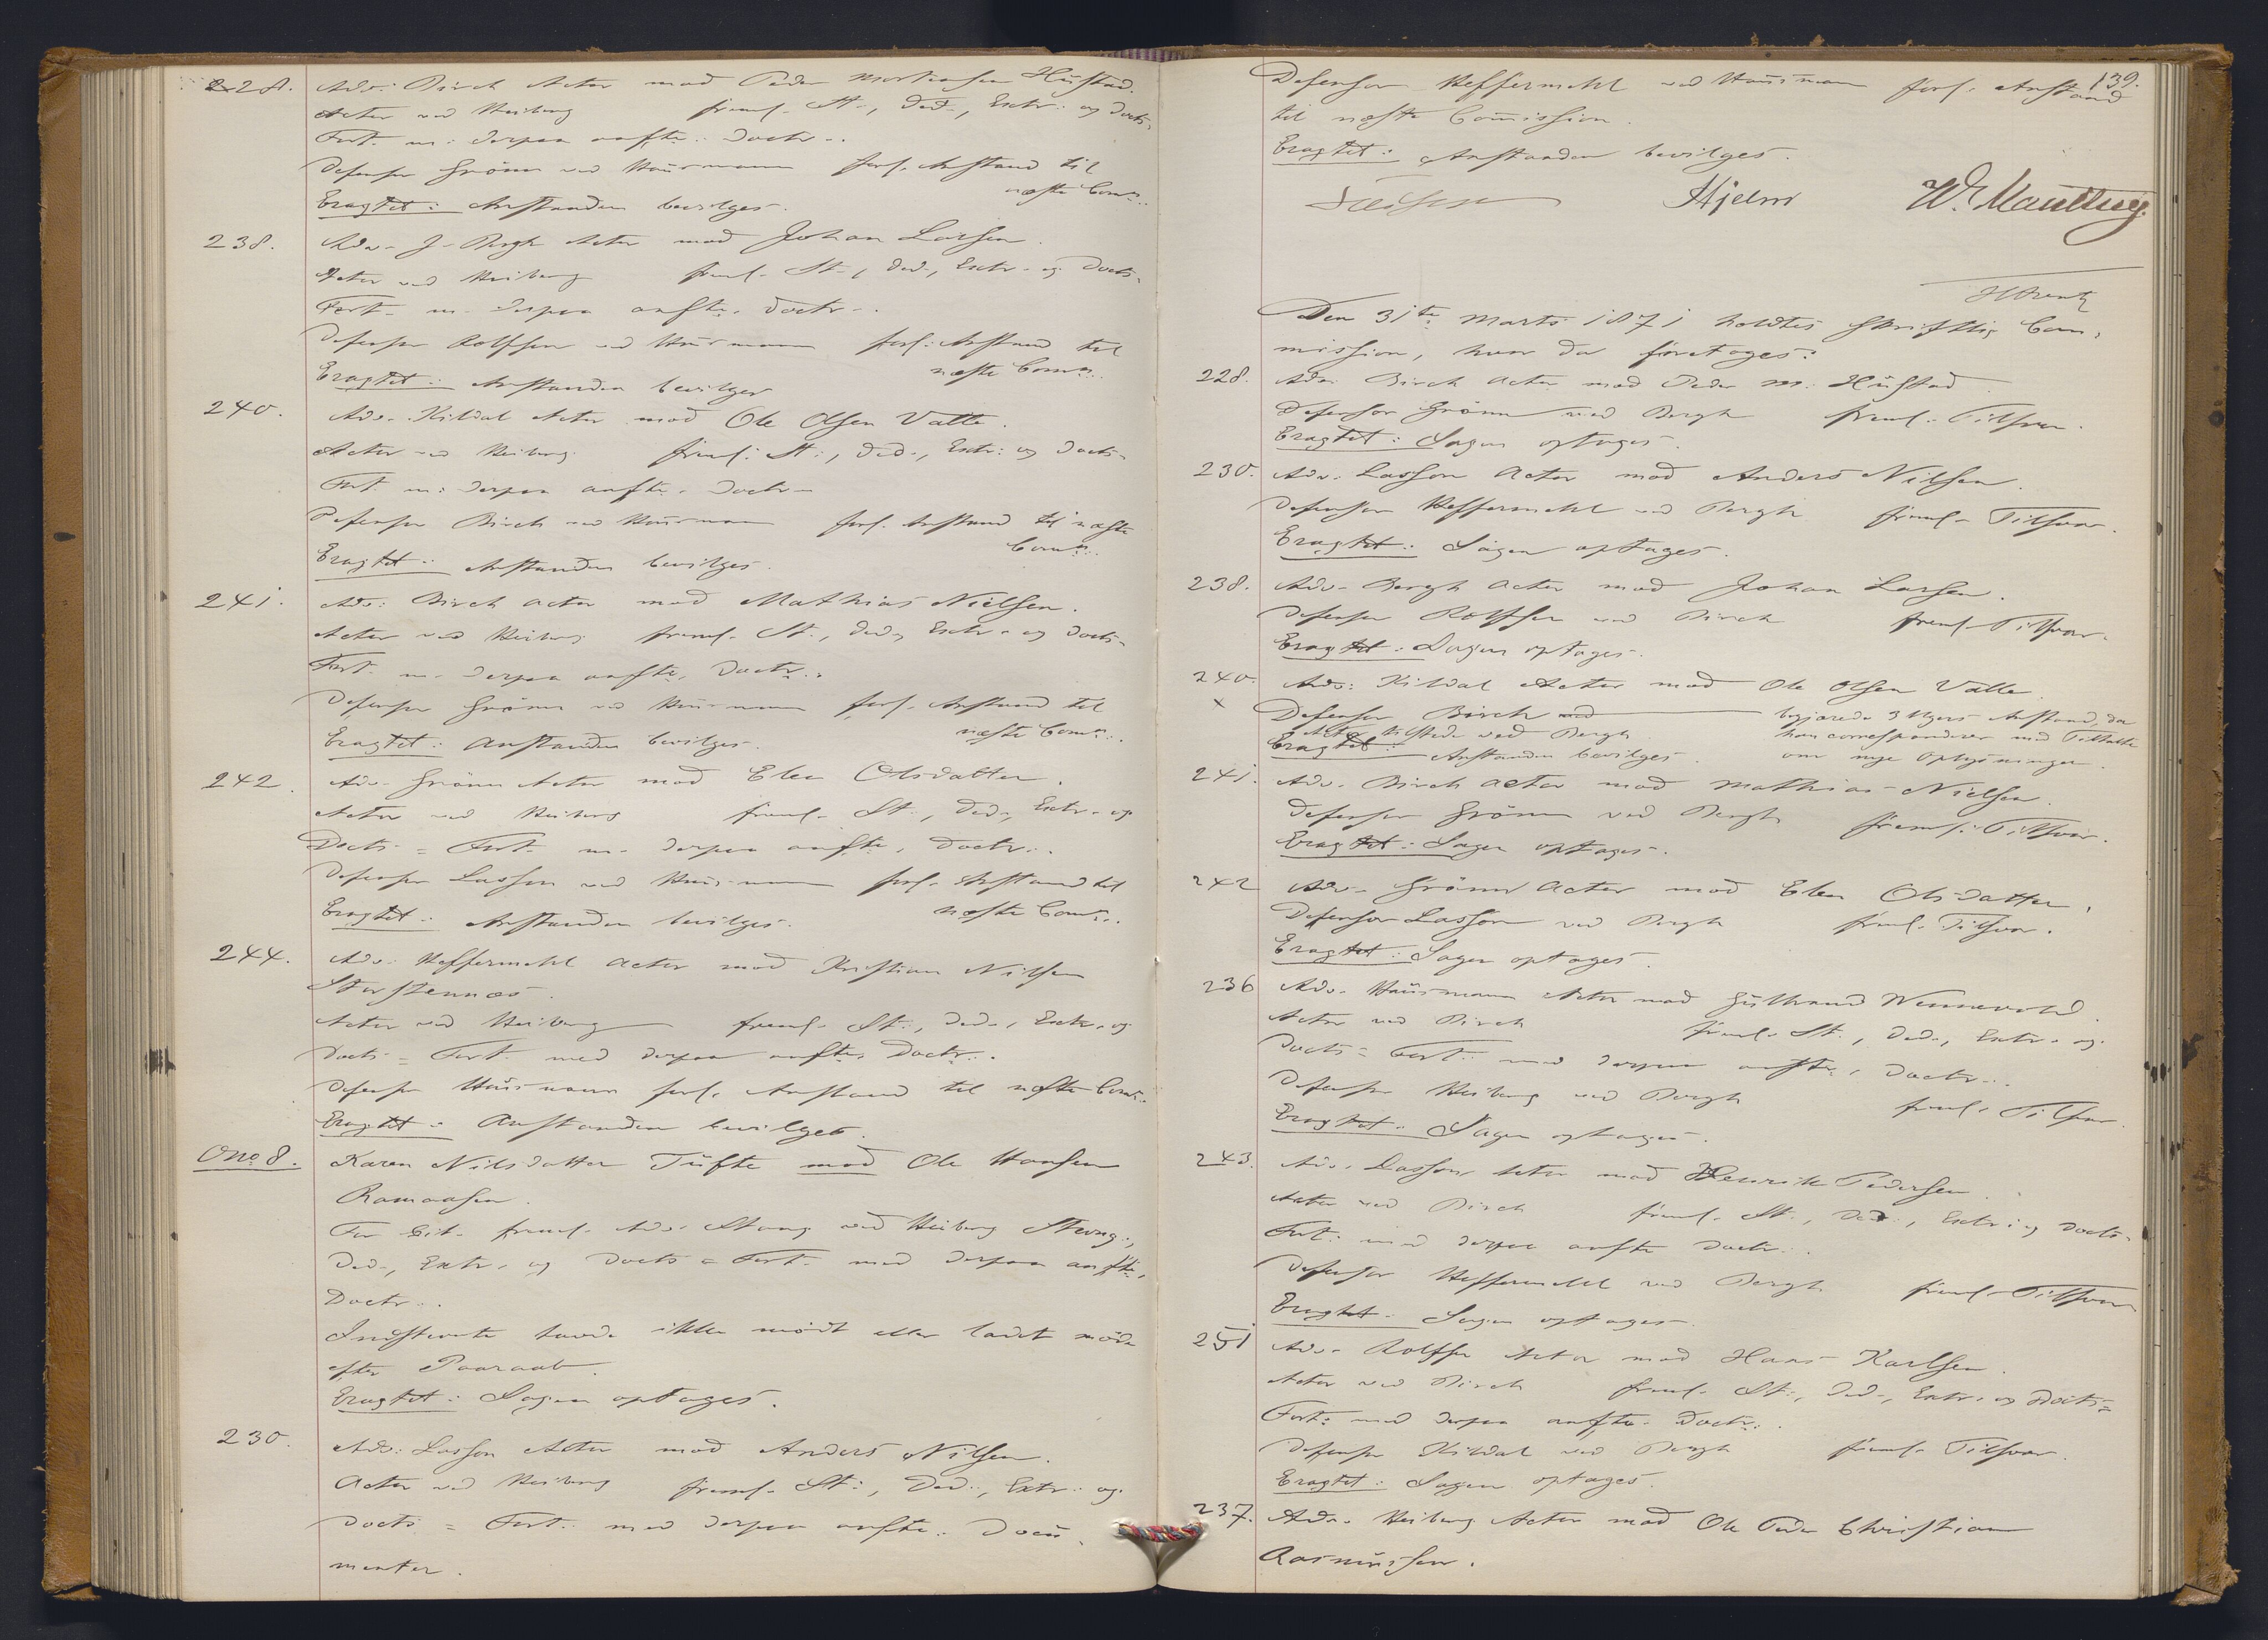 228. Adv: Birch Actor mod Peder Mortensen Hustad.
Actor ved Heiberg freml. St., Ded., Extr: og Docts-
Fort. m: derpaa anfte. Doctr.
Defensor Grönn ved Hausmann forl. Anstand til
næste Comn.
Eragtet: Anstanden bevilges.
238. Adv. J. Bergh Actor mod Johan Larsen.
Actor ved Heiberg freml. St., Ded., Extr. og Docts-
Fort. m. derpaa anfte. Doctr.
Defensor Rolfsen ved Hausmann forl. Anstand til
næste Comn.
Eragtet: Anstanden bevilges
240. Adv. Kildal Actor mod Ole Olsen Valle.
Actor ved Heiberg freml: St:, Ded., Extr: og Docts-
Fort. m: derpaa anfte. Doctr.
Defensor Birch ved Hausmann forl. Anstand til næste
Comn.
Eragtet: Anstanden bevilges.
241. Adv: Birch Actor mod Mathias Nielsen.
Actor ved Heiberg freml. St., Ded., Extr. og Docts-
Fort. m. derpaa anfte. Doctr.
Defensor Grönn ved Hausmann forl. Anstand til
næste Comn.
Eragtet: Anstanden bevilges.
242. Adv. Grönn Actor mod Elen Olsdatter.
Actor ved Heiberg freml. St., Ded., Extr. og
Docts = Fort. m. derpaa anfte. Doctr.
Defensor Lasson ved Hausmann forl. Anstand til
næste Comn.
Eragtet: Anstanden bevilges.
244. Adv. Heffermehl Actor mod Kristian Nilsen
Storstennæs.
Actor ved Heiberg freml. St., Ded., Extr. og
Docts = Fort. med derpaa anfte. Doctr.
Defensor Hausmann forl. Anstand til næste Comn.
Eragtet: Anstanden bevilges.
Ono 8. Karen Nilsdatter Tufte mod Ole Hansen
Ramaasen.
For Cit. freml. Adv. Stang ved Heiberg Stevng.,
Ded., Extr. og Docts = Fort. med derpaa anfte.
Doctr.
Indstevnte havde ikke mödt eller ladet möde
efter Paaraab.
Eragtet: Sagen optages.
230. Adv: Lasson Actor mod Anders Nilsen.
Actor ved Heiberg freml. St:, Ded:, Extr: og
Docts = Fort. med derpaa anfte. Docu-
menter.
139.
Defensor Heffermehl ved Hausmann forl. Anstand
til næste Commission.
Eragtet: Anstanden bevilges.
Hjelm
Den 31te Marts 1871 holdtes skriftlig Com-
mission, hvor da foretages:
228. Adv. Birch Actor mod Peder M. Hustad
Defensor Grönn ved Bergh freml. Tilsvar.
Eragtet: Sagen optages.
230. Adv. Lasson Actor mod Anders Nilsen.
Defensor Heffermehl ved Bergh freml. Tilsvar.
Eragtet: Sagen optages.
238. Adv. Bergh Actor mod Johan Larsen.
Defensor Rolfsen ved Birch freml. Tilsvar.
Eragtet: Sagen optages.
240. Adv: Kildal Actor mod Ole Olsen Valle.
x Defensor Birch ved begjærede 3 Ugers Anstand, da
Actor tilstede ved Bergh han corresponderer med Tiltalte
Eragtet: Anstanden bevilges. om nye Oplysninger.
241. Adv. Birch Actor mod Mathias Nielsen.
Defensor Grönn ved Bergh freml. Tilsvar.
Eragtet: Sagen optages.
242 Adv. Grönn Actor mod Elen Olsdatter.
Defensor Lasson ved Bergh freml. Tilsvar.
Eragtet: Sagen optages.
236 Adv. Hausmann Actor mod Gulbrand Wennevold.
Actor ved Birch freml. St., Ded., Extr. og
Docts = Fort. med derpaa anfte. Doctr.
Defensor Heiberg ved Bergh freml. Tilsvar.
Eragtet: Sagen optages.
243. Adv. Lasson Actor mod Henrik Pedersen.
Actor ved Birch freml. St., Ded., Extr: og Docts-
Fort: med derpaa anfte Doctr.
Defensor Heffermehl ved Bergh freml. Tilsvar
Eragtet. Sagen optages.
251 Adv. Rolfsen Actor mod Hans Karlsen.
Actor ved Birch freml. St., Ded., Extr. og Docts =
Fort: med derpaa anfte. Doctr.
Defensor Kildal ved Bergh freml. Tilsvar.
Eragtet: Sagen optages.
237. Adv. Heiberg Actor mod Ole Peder Christian
Rasmussen.